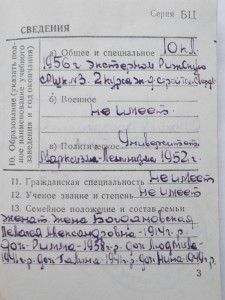 Серия БЦ
СВЕДЕНИЯ
10. Образование (указать полное наименование учебного заведения и год окончания)
а) Общее и специальное 10 кл.
1956г экстерном Рижскую
№3. 2 курса ж-д
б) Военное не имеет
в) Политическое Университет
Марксизма-Ленинизма 1952 г.
11. Гражданская специальность не имеет
12. Ученое звание и степень не имеет
13. Семейное положение и состав семьи
женат. Жена
Александровна-1914г.р.
дочь Римма-1938г.р. дочь Людмила-
1941г.р. дочь Галина-1941г.р. дочь Нина-1949г.р.
3